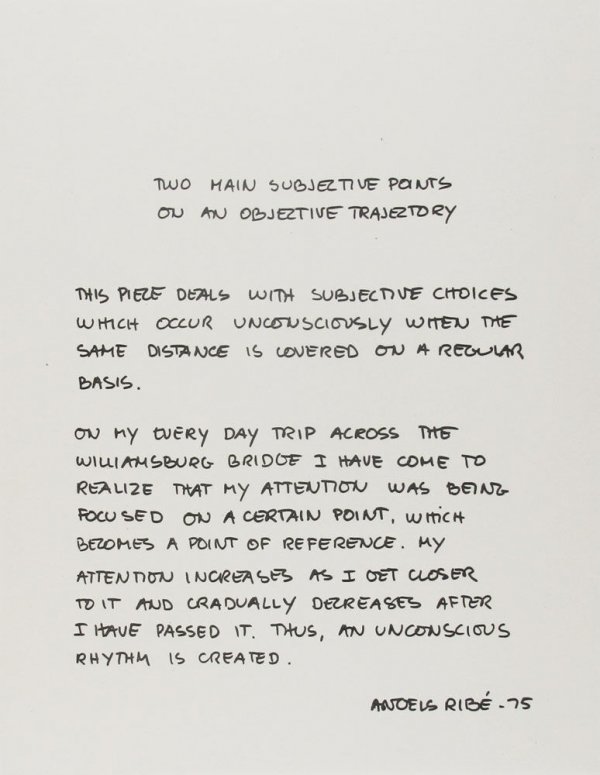 TWO MAIN SUBJECTIVE POINTS
ON AN OBJECTIVE TRAJECTORY
THIS PIECE DEALS WITH SUBJECTIVE CHOICES
WHICH OCCUR UNCONSCIOUSLY WHEN THE
SAME DISTANCE IS COVERED ON A REGULAR
BASIS.
ON MY EVERY DAY TRIP ACROSS THE
WILLIAMSBURG BRIDGE I HAVE COME TO
REALIZE THAT MY ATTENTION WAS BEING
FOCUSED ON A CERTAIN POINT, WHICH
BECOMES A POINT OF REFERENCE. MY
ATTENTION INCREASES AS I GET CLOSER
TO IT AND GRADUALLY DECREASES AFTER
I HAVE PASSED IT. THUS, AN UNCONSCIOUS
RHYTHM IS CREATED.
ANGELS RIBÉ - 75